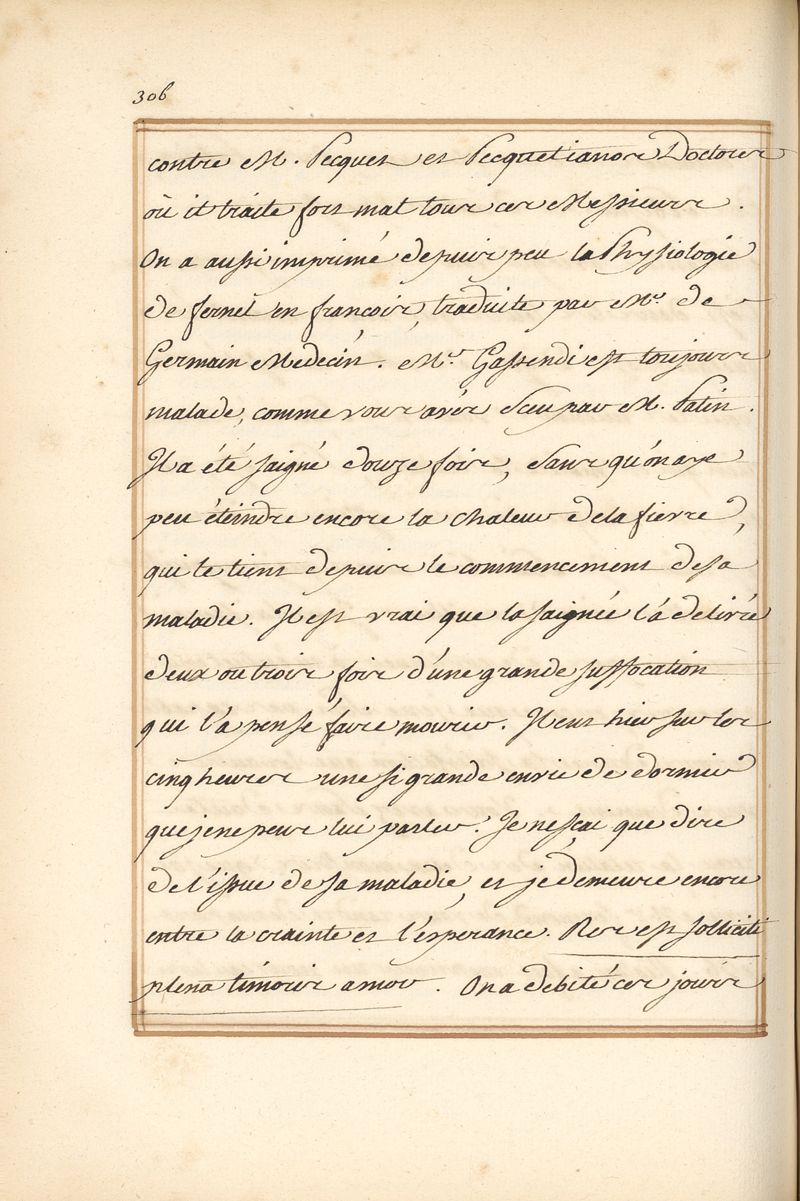 306
contre M. Pecquet et Pecquetianos Doctores
où il traite fort mal tous ces Messieurs.
On a aussi imprimé depuis peu la Physiologie
de fernel en francois, traduite par Mr. de
Germain Medecin. Mr. Gassendi est toujours
malade, comme vous avés sceu par M. Patin.
Il a été saigné douze fois, sans qu'on aye
peu éteindre encore la chaleur de la fievre,
qui le tient depuis le commencement de sa
maladie. Il est vrai que la saignée l'a delivré
deux ou trois fois d'une grande suffocation
qui l'a pensé faire mourir. Il eut hier sur les
cinq heures une si grande envie de dormir
que je ne peus lui parler. Je ne scai que dire
de l'issue de sa maladie, et je demeure encore
entre la crainte et l'esperance. Res est solliciti
plena timoris amor. On a debité ces jours